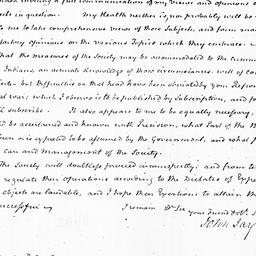 a full communication of my views and opinions
in question. My Health neither is, nor probably will be
me to take comprehensive views of those Subjects, and form
factory opinions on the various Topics which they embrace.
that the measures of the Society may be accommodated to the
Indians, an accurate knowledge of those circumstances will of
but difficulties on that head have been obviated by your
which I observe is to be published by Subscription, and
subscribe. It also appears to me to be equally necessary,
be ascertained and known with Precision, what Part of the
is expected to be assumed by the Government, and what
care and Management of the Society.
The Society will doubtless proceed circumspectly; and from
regulate their operations according to the Dictates of
objects are laudable, and I hope their Exertions to attain
successful
I remain Dr Sir
your friend & Obt
John Jay